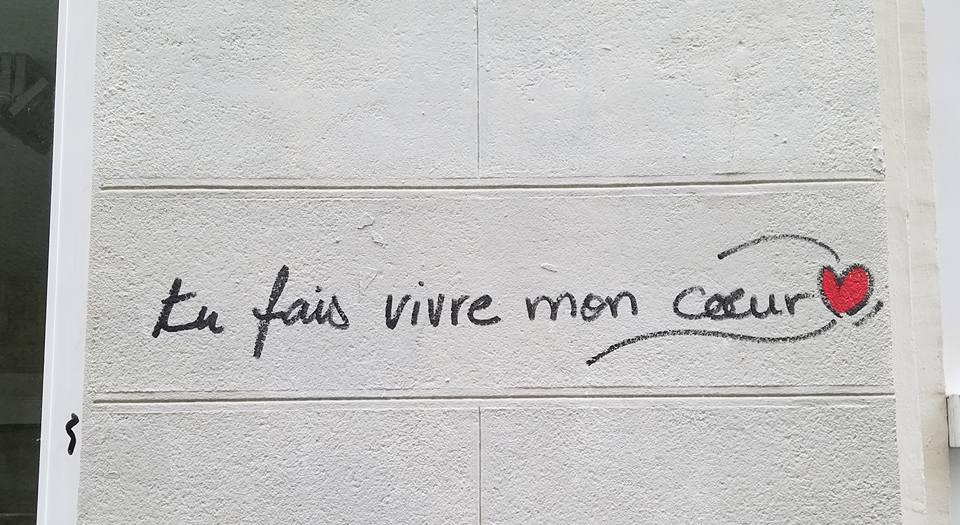 tu fais vivre mon cœur